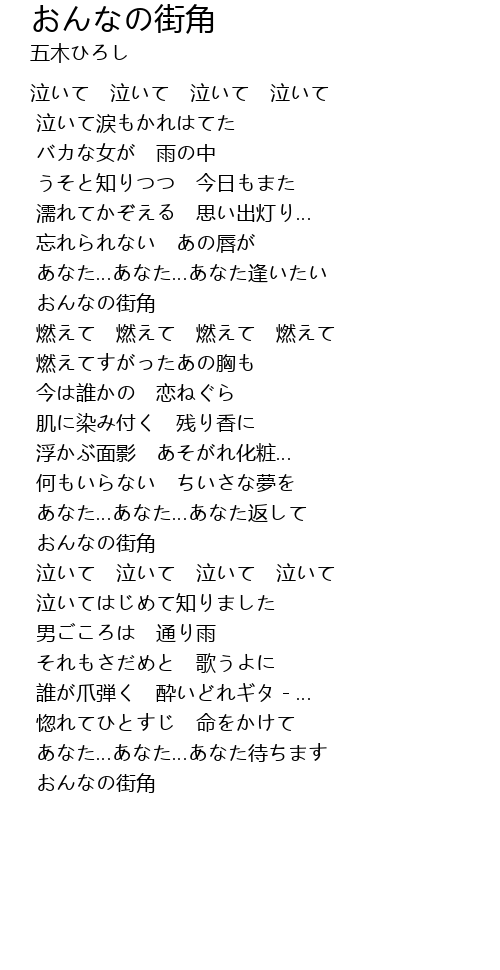 おんなの街角
五木ひろし
泣いて　泣いて　泣いて　泣いて
泣いて涙もかれはてた
バカな女が　雨の中
うそと知りつつ　今日もまた
濡れてかぞえる　思い出灯り...
忘れられない　あの唇が
あなた...あなた...あなた逢いたい
おんなの街角
燃えて　燃えて　燃えて　燃えて
燃えてすがったあの胸も
今は誰かの　恋ねぐら
肌に染み付く　残り香に
浮かぶ面影　あそがれ化粧...
何もいらない　ちいさな夢を
あなた...あなた...あなた返して
おんなの街角
泣いて　泣いて　泣いて　泣いて
泣いてはじめて知りました
男ごころは　通り雨
それもさだめと　歌うよに
誰が爪弾く　酔いどれギタ－...
惚れてひとすじ　命をかけて
あなた...あなた...あなた待ちます
おんなの街角